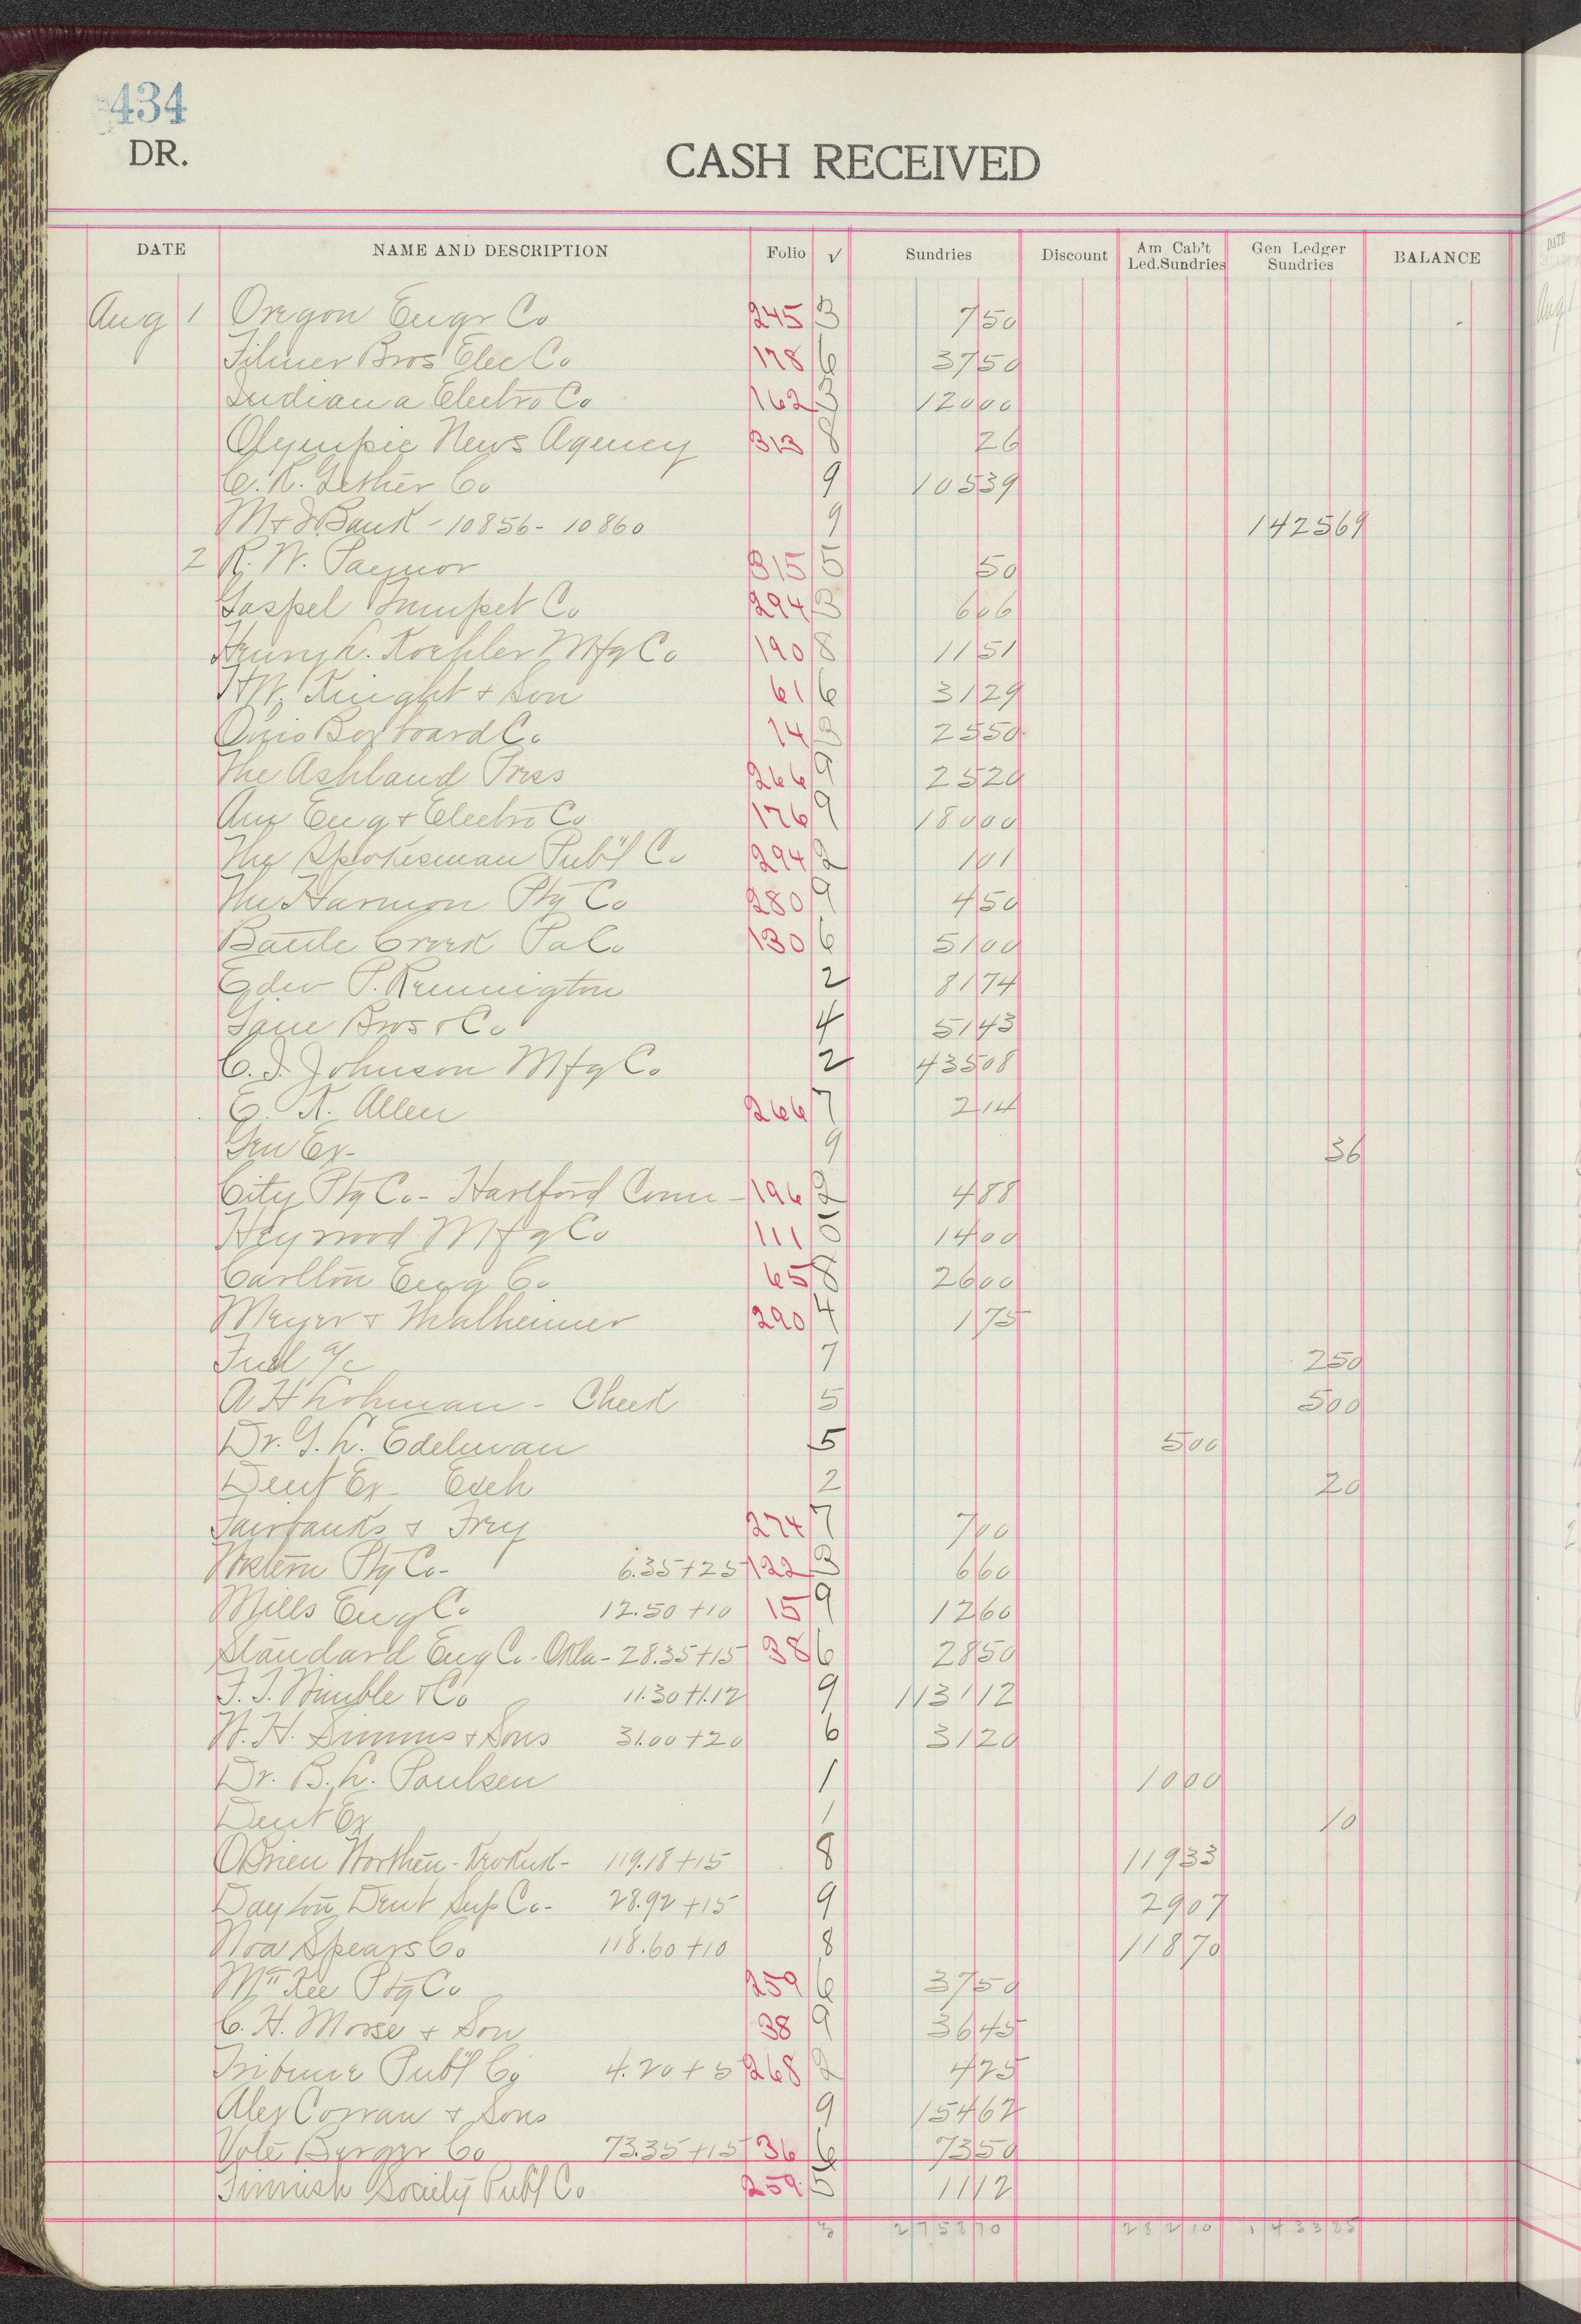 434
DR.
CASH RECEIVED
DATE NAME AND DESCRIPTION Folio √ Sundries Discount Am Cab't Led.Sundries Gen Ledger Sundries BALANCE
Aug 1 Oregon Engr Co 245 3 750
Filmer Bros Elec Co 178 6 3750
Indiana Electro Co 162 3 12000
Olympic News Agency 313 8 26
C. R. Gether Co 9 10539
M & I Bank - 10856 - 10860 9 142569
2 R. W. Paynor 315 5 50
Gospel Trumpet Co 294 3 606
Henry L. Koehler Mfg Co 190 8 1151
H W. Knight & Son 61 6 3129
Ohio Boxboard Co 14 3 2550
The Ashland Press 266 9 2520
Am Eng & Electro Co 176 9 18000
The Spokesman Pub'l Co 294 2 101
The Harmon Ptg Co 280 9 450
Battle Creek Pa Co 130 6 5100
Edw P. Remington 2 8174
Gane Bros & Co 4 5143
C. I. Johnson Mfg Co 2 43508
E. K. Allen 266 7 214
Gen Ex- 9 36
City Ptg Co - Hartford Conn - 196 2 488
Heywood Mfg Co 111 5 1400
Carlton Eng Co 65 8 2600
Meyer & Thalheimer 290 4 175
Fuel a/c 7 250
A H Lohman - Check 5 500
Dr. G. L. Edelman 5 500
Dent Ex - Exch 2 20
Fairbanks & Frey 274 7 700
Western Ptg Co - 6.35+25 122 3 660
Mills Eng Co 12.50+10 15 9 1260
Standard Eng Co - Okla - 28.35+15 38 6 2850
F. T. Wimble & Co 11.30+1.12 9 113112
W. H. Simms & Sons 31.00+20 6 3120
Dr. B. L. Poulsen 1 1000
Dent Ex 1 10
OBrien Worthen - Keokuk - 119.18+15 8 11933
Dayton Dent Sup Co - 28.92+15 9 2907
Noa Spears Co 118.60+10 8 11870
McKee Ptg Co 259 6 3750
C. H. Morse & Son 38 9 3645
Tribune Pub'l Co 4.20+5 268 2 425
Alex Cowan & Sons 9 15462
Vote Berger Co 73.35+15 36 6 7350
Finnish Society Pub'l Co 259 5 1112
3 275870 28210 143385